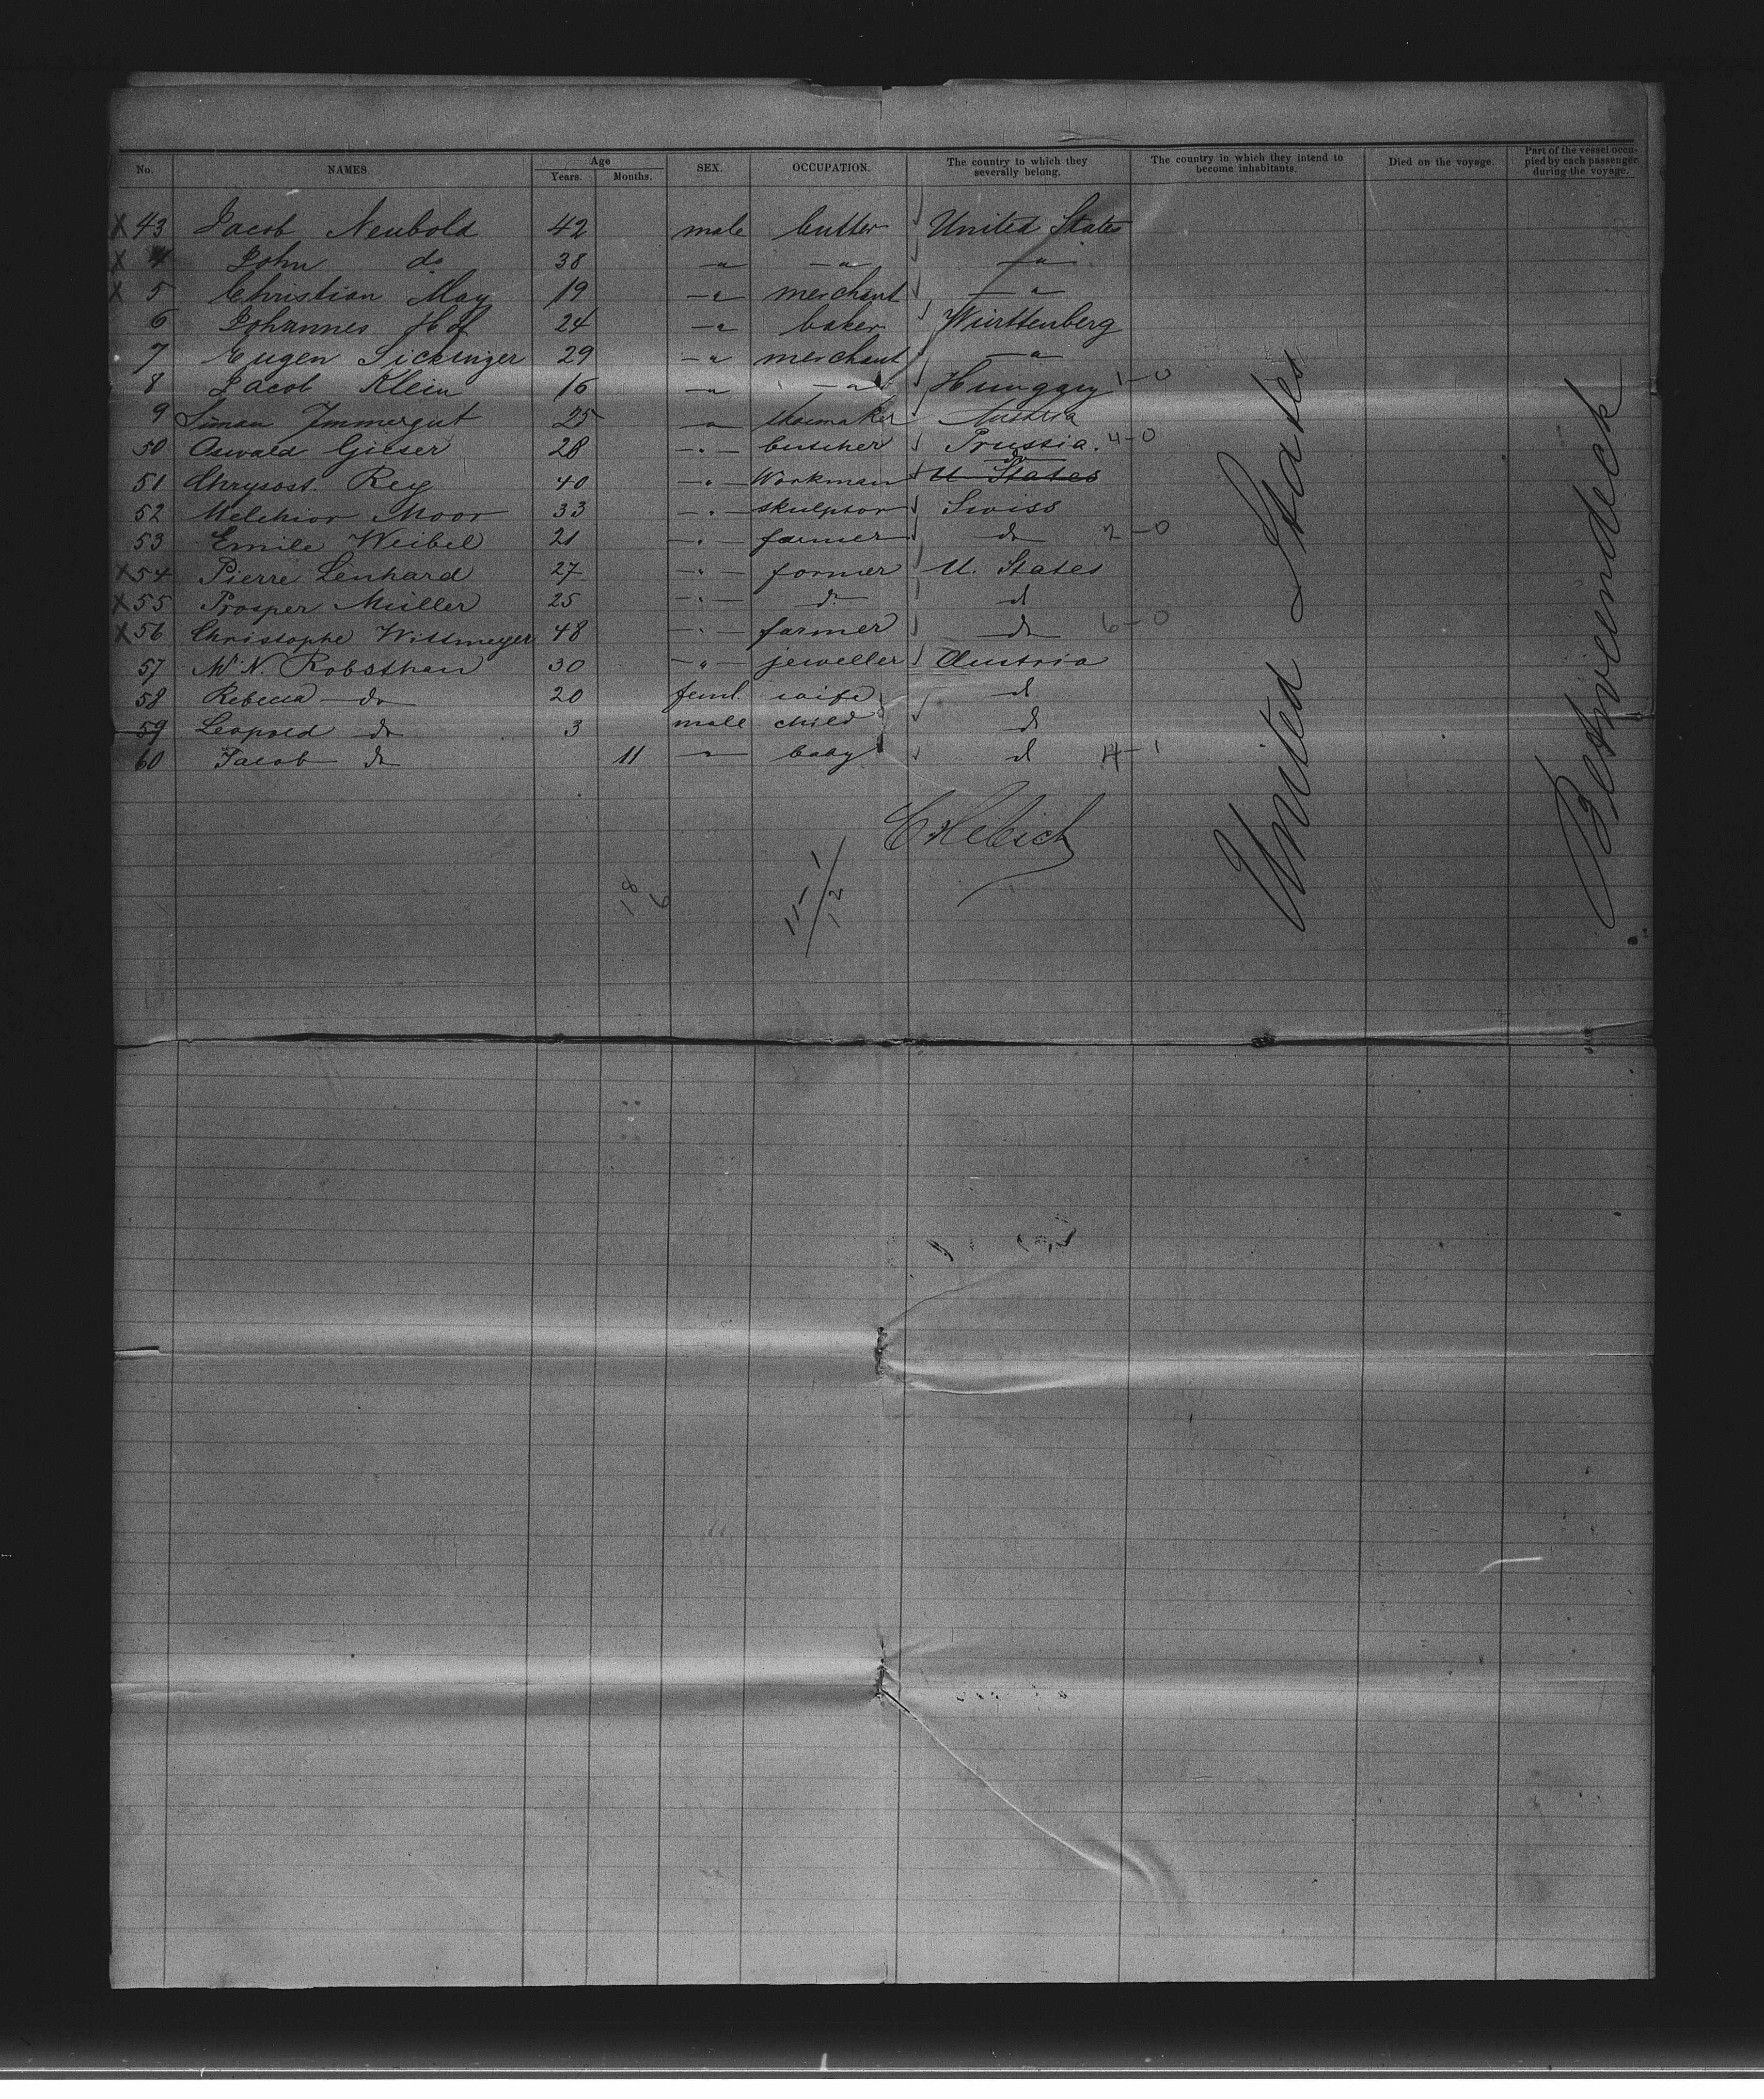 No. NAMES. Age Years. Months. SEX. OCCUPATION. The country to which they severally belong. The country in which they intend to become inhabitants. Died on the voyage. Part of the vessel occupied by each passenger during the voyage.
X 43 Jacob Neubold 42 male cutter United States
X 4 John do 38 " " "
X 5 Christian May 19 " merchant "
6 Johannes Hof 24 " baker Württenberg
7 Eugen Sickinger 29 " merchant "
8 Jacob Klein 16 " " Hunggry 1-0
9 Simon Immergut 25 " shoemaker Austria
50 Oswald Gieser 28 " butcher Prussia. 4-0
51 Chrysost. Rey 40 " Workman U States do
52 Melchior Moor 33 " skulptor Swiss
53 Emile Weibel 21 " farmer do 2-0
X 54 Pierre Lenhard 27 " former U. States
X 55 Prosper Müller 25 " do d
X 56 Christophe Wittmeyer 48 " farmer do 6-0
57 Mr N. Robsthan 30 " jeweller Austria
58 Rebecca do 20 feml. wife d
59 Leopold do 3 male child d
60 Jacob do 11 " baby d 4-1
United States
Betweendeck
18
6
11-1
12